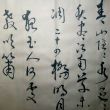 青山隱隱水迢
秋盡江南草
凋二十四橋明月
夜玉人何處
教吹簫